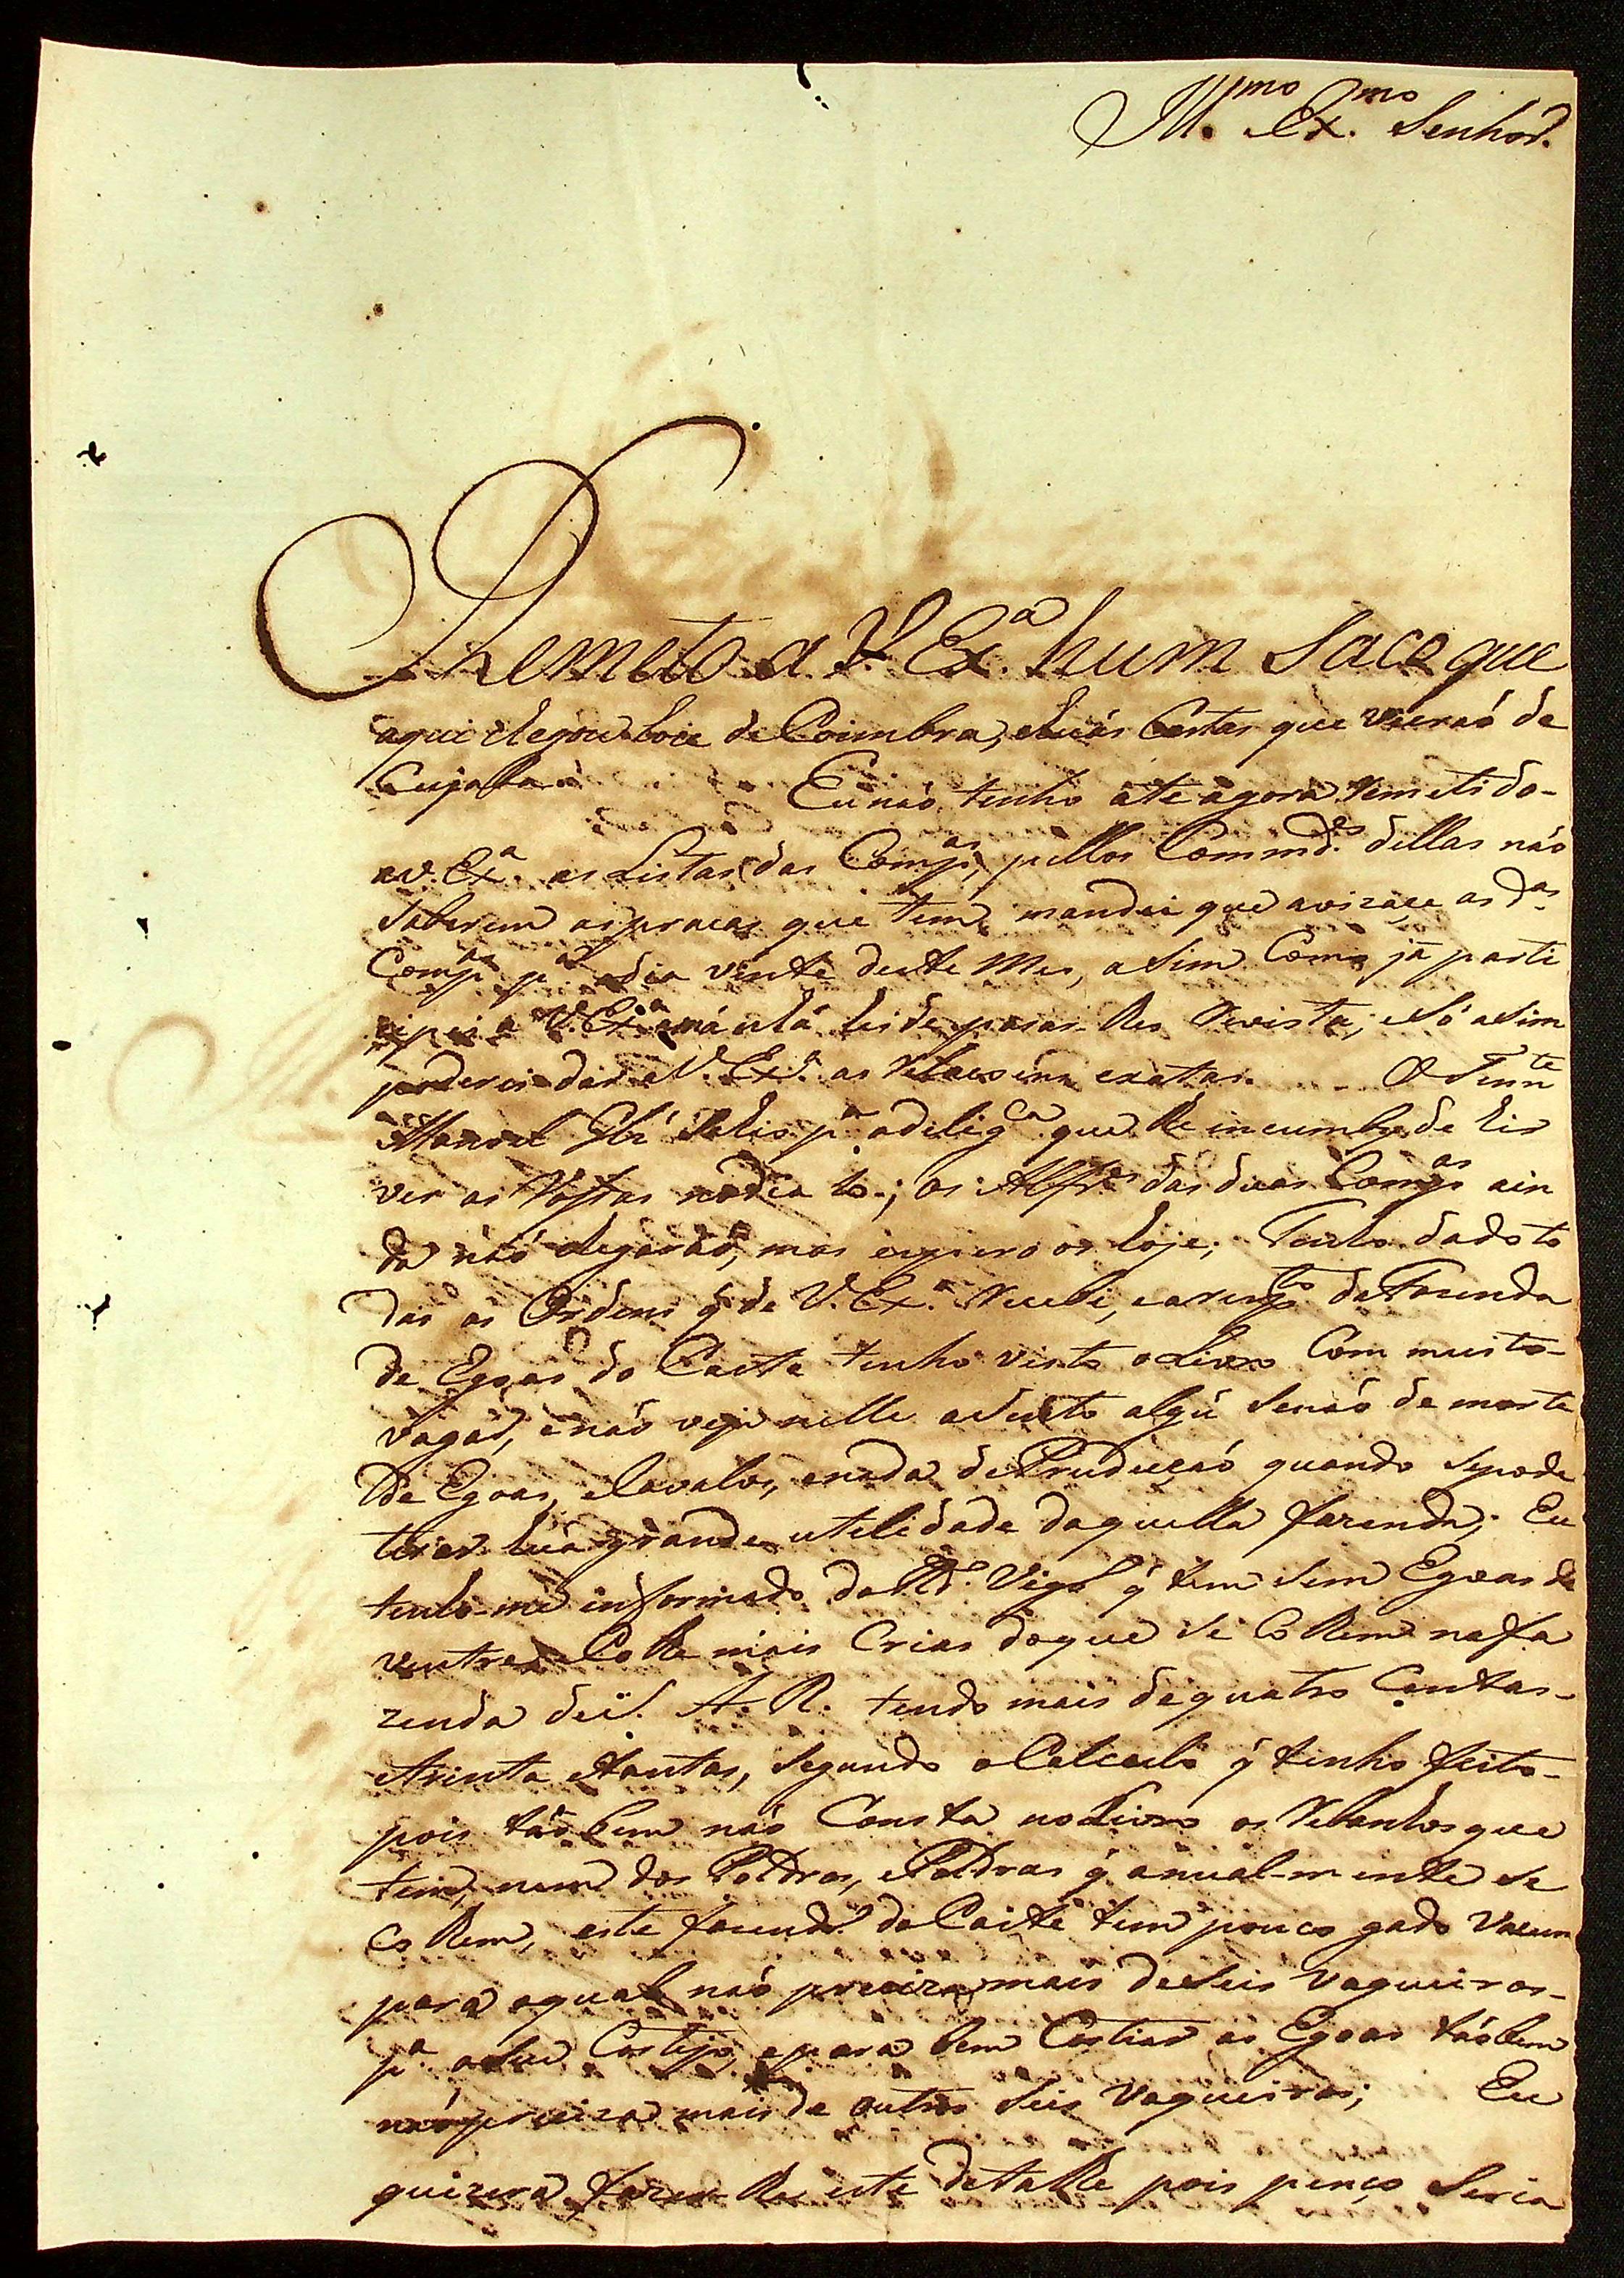 Ill.mo Ex.mo Senhor.
Remeto a V. Ex.a hum Saco que
aqui chegou hoie de Coimbra, e huás Cartas que vieraó de
Cuyaba
Eu naó tenho ate agora remetido
a V. Ex.a as Listas das Comp.as, pellos Commd.es dellas não
Saberem as pracas que tem, mandei que avizaçe as D.as
Comp.as p.a o dia vinte deste Mes, asim Como já parti
cipei a V. Ex.a amánhá hei de pasar-lhes Revista, e Só asim
poderei dar a V. Ex.a as Relacoéns exatas. O Tenn.te
Manoel Glz' Sahio p.a a delig.ca que lhe incumbe de hir
ver as Rossas no dia 10.; os Alf.es das duas Comp.as ain
da náó chegaraó, mas espero os hoje; Tenho dado to
das as Ordens q' de V. Ex.a Recebi, e a resp.to da Fazenda
de Egoas do Caeté tenho visto o Livro Com muito
vagar, e náo vejo nelle asento algú senáo de morte
de Egoas, e Cavalos, e nada de Produçáó quando se pode
tirar huá grande utelidade daquella fazenda; Eu
tenho-me informado do R.do Vig.o q' tem Sem Egoas de
ventre e Colhe mais Crias do que se Colhem na fa
zenda de S. A. R. tendo mais de quatro Centas
e trinta e tantas, Segundo o Calculo q' tenho feito
pois táobem náo Consta no Livro os Rebanhos que
tem, nem dos Poldros, e Poldras q' anual-mente se
Colhem, este fazend.a do Caeté tem pouco gado Vacum
para o qual náo preciza mais de Seis Vaqueiros
p.a o Seu Costeyo, e para bem Costiar as Egoas táobem
náo preciza mais de outros Seis Vaqueiros; Eu
quizera fazer-lhe este detalhe pois penço Seria